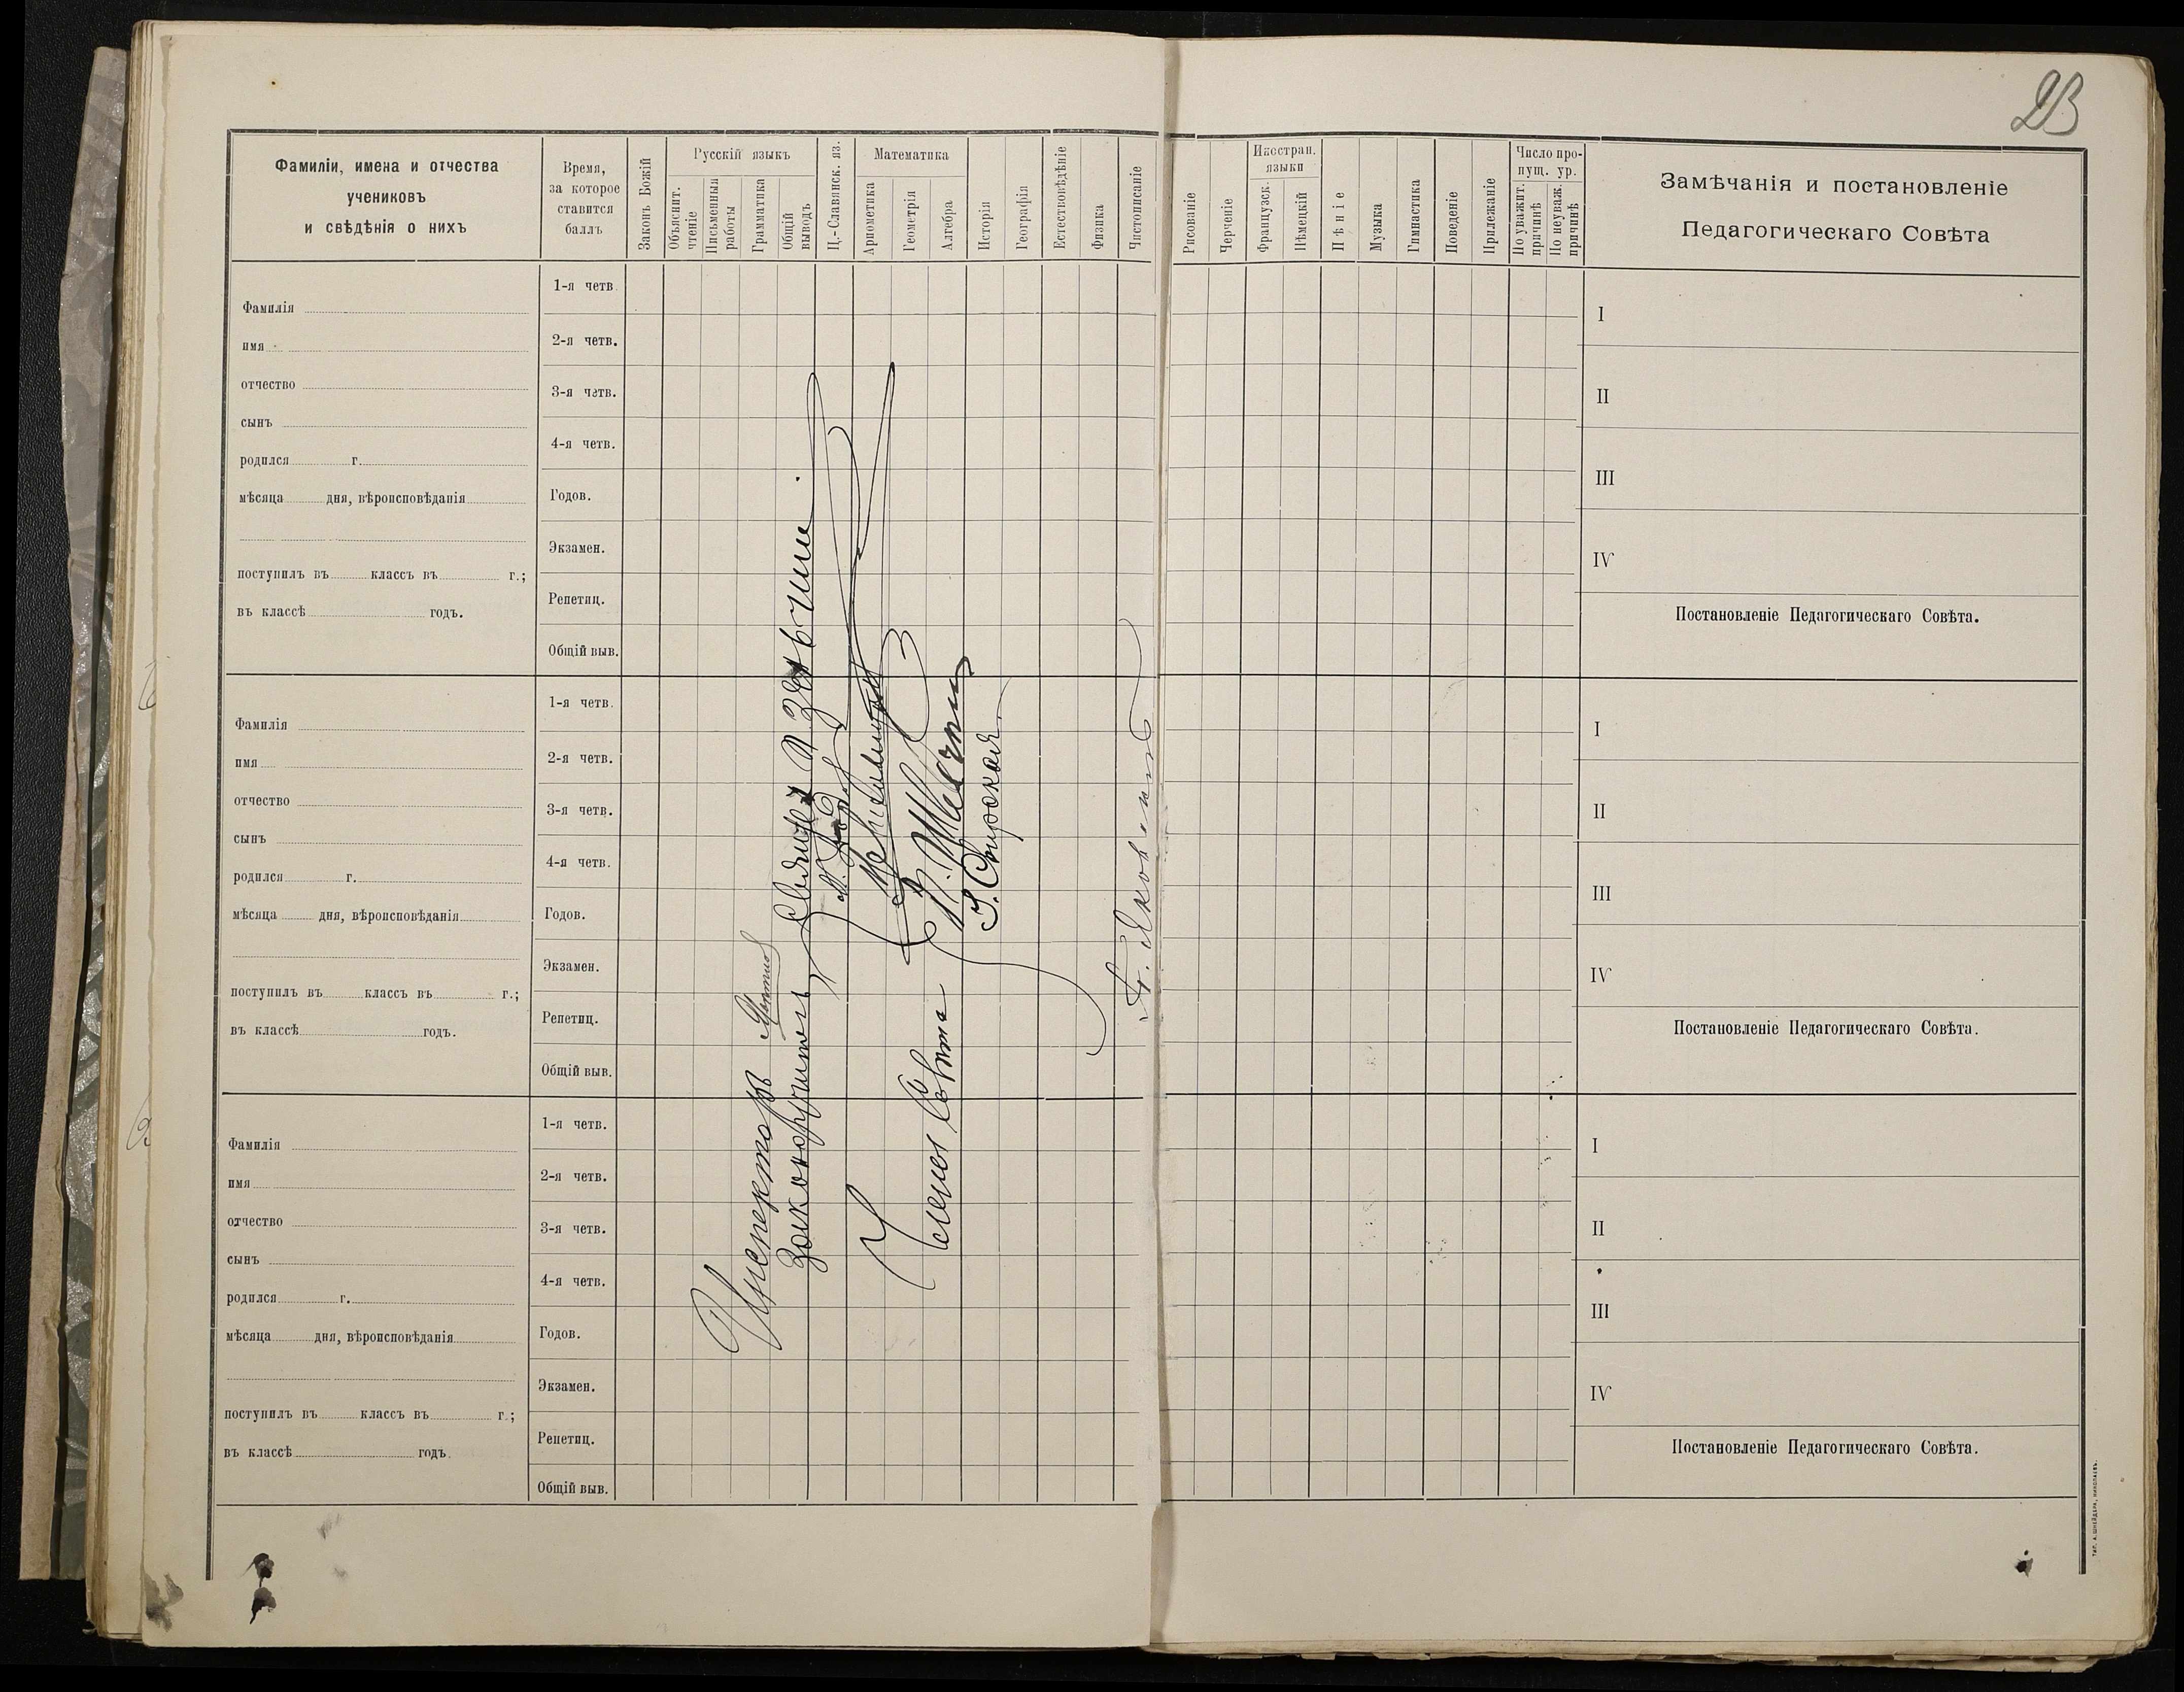 23
Фамиліи, имена и отчества
учениковъ
и свѣдѣнія о нихъ
Время,
за которое
ставится
баллъ
Законъ Божій
Русскій языкъ
Объяснит.
чтеніе
Письменныя
работы
Грамматика
Общій
выводъ
Ц.-Славянск. яз.
Математика
Ариөметика
Геометрія
Алгебра
Исторія
Географія
Естествовѣдѣніе
Физика
Чистописаніе
Рисованіе
Черченіе
Иностран.
языки
Французск.
Нѣмецкій
Пѣніе
Музыка
Гимнастика
Поведеніе
Прилежаніе
Число про-
пущ. ур.
По уважит.
причинѣ
По неуваж.
причинѣ
Замѣчанія и постановленіе
Педагогическаго Совѣта
Фамилія
имя
отчество
сынъ
родился г.
мѣсяца дня, вѣроисповѣданія
поступилъ въ классъ въ г.;
въ классѣ годъ.
1-я четв.
2-я четв.
3-я четв.
4-я четв.
Годов.
Экзамен.
Репетиц.
Общій выв.
I
II
III
IV
Постановленіе Педагогическаго Совѣта.
Фамилія
имя
отчество
сынъ
родился г.
мѣсяца дня, вѣроисповѣданія
поступилъ въ классъ въ г.;
въ классѣ годъ.
1-я четв.
2-я четв.
3-я четв.
4-я четв.
Годов.
Экзамен.
Репетиц.
Общій выв.
I
II
III
IV
Постановленіе Педагогическаго Совѣта.
Фамилія
имя
отчество
сынъ
родился г.
мѣсяца дня, вѣроисповѣданія
поступилъ въ классъ въ г.;
въ классѣ годъ.
1-я четв.
2-я четв.
3-я четв.
4-я четв.
Годов.
Экзамен.
Репетиц.
Общій выв.
I
II
III
IV
Постановленіе Педагогическаго Совѣта.
Инспекторъ
Законоучитель
Члены Совѣта
Яковенко
Тип. А. Шнейдера, Николаевъ.